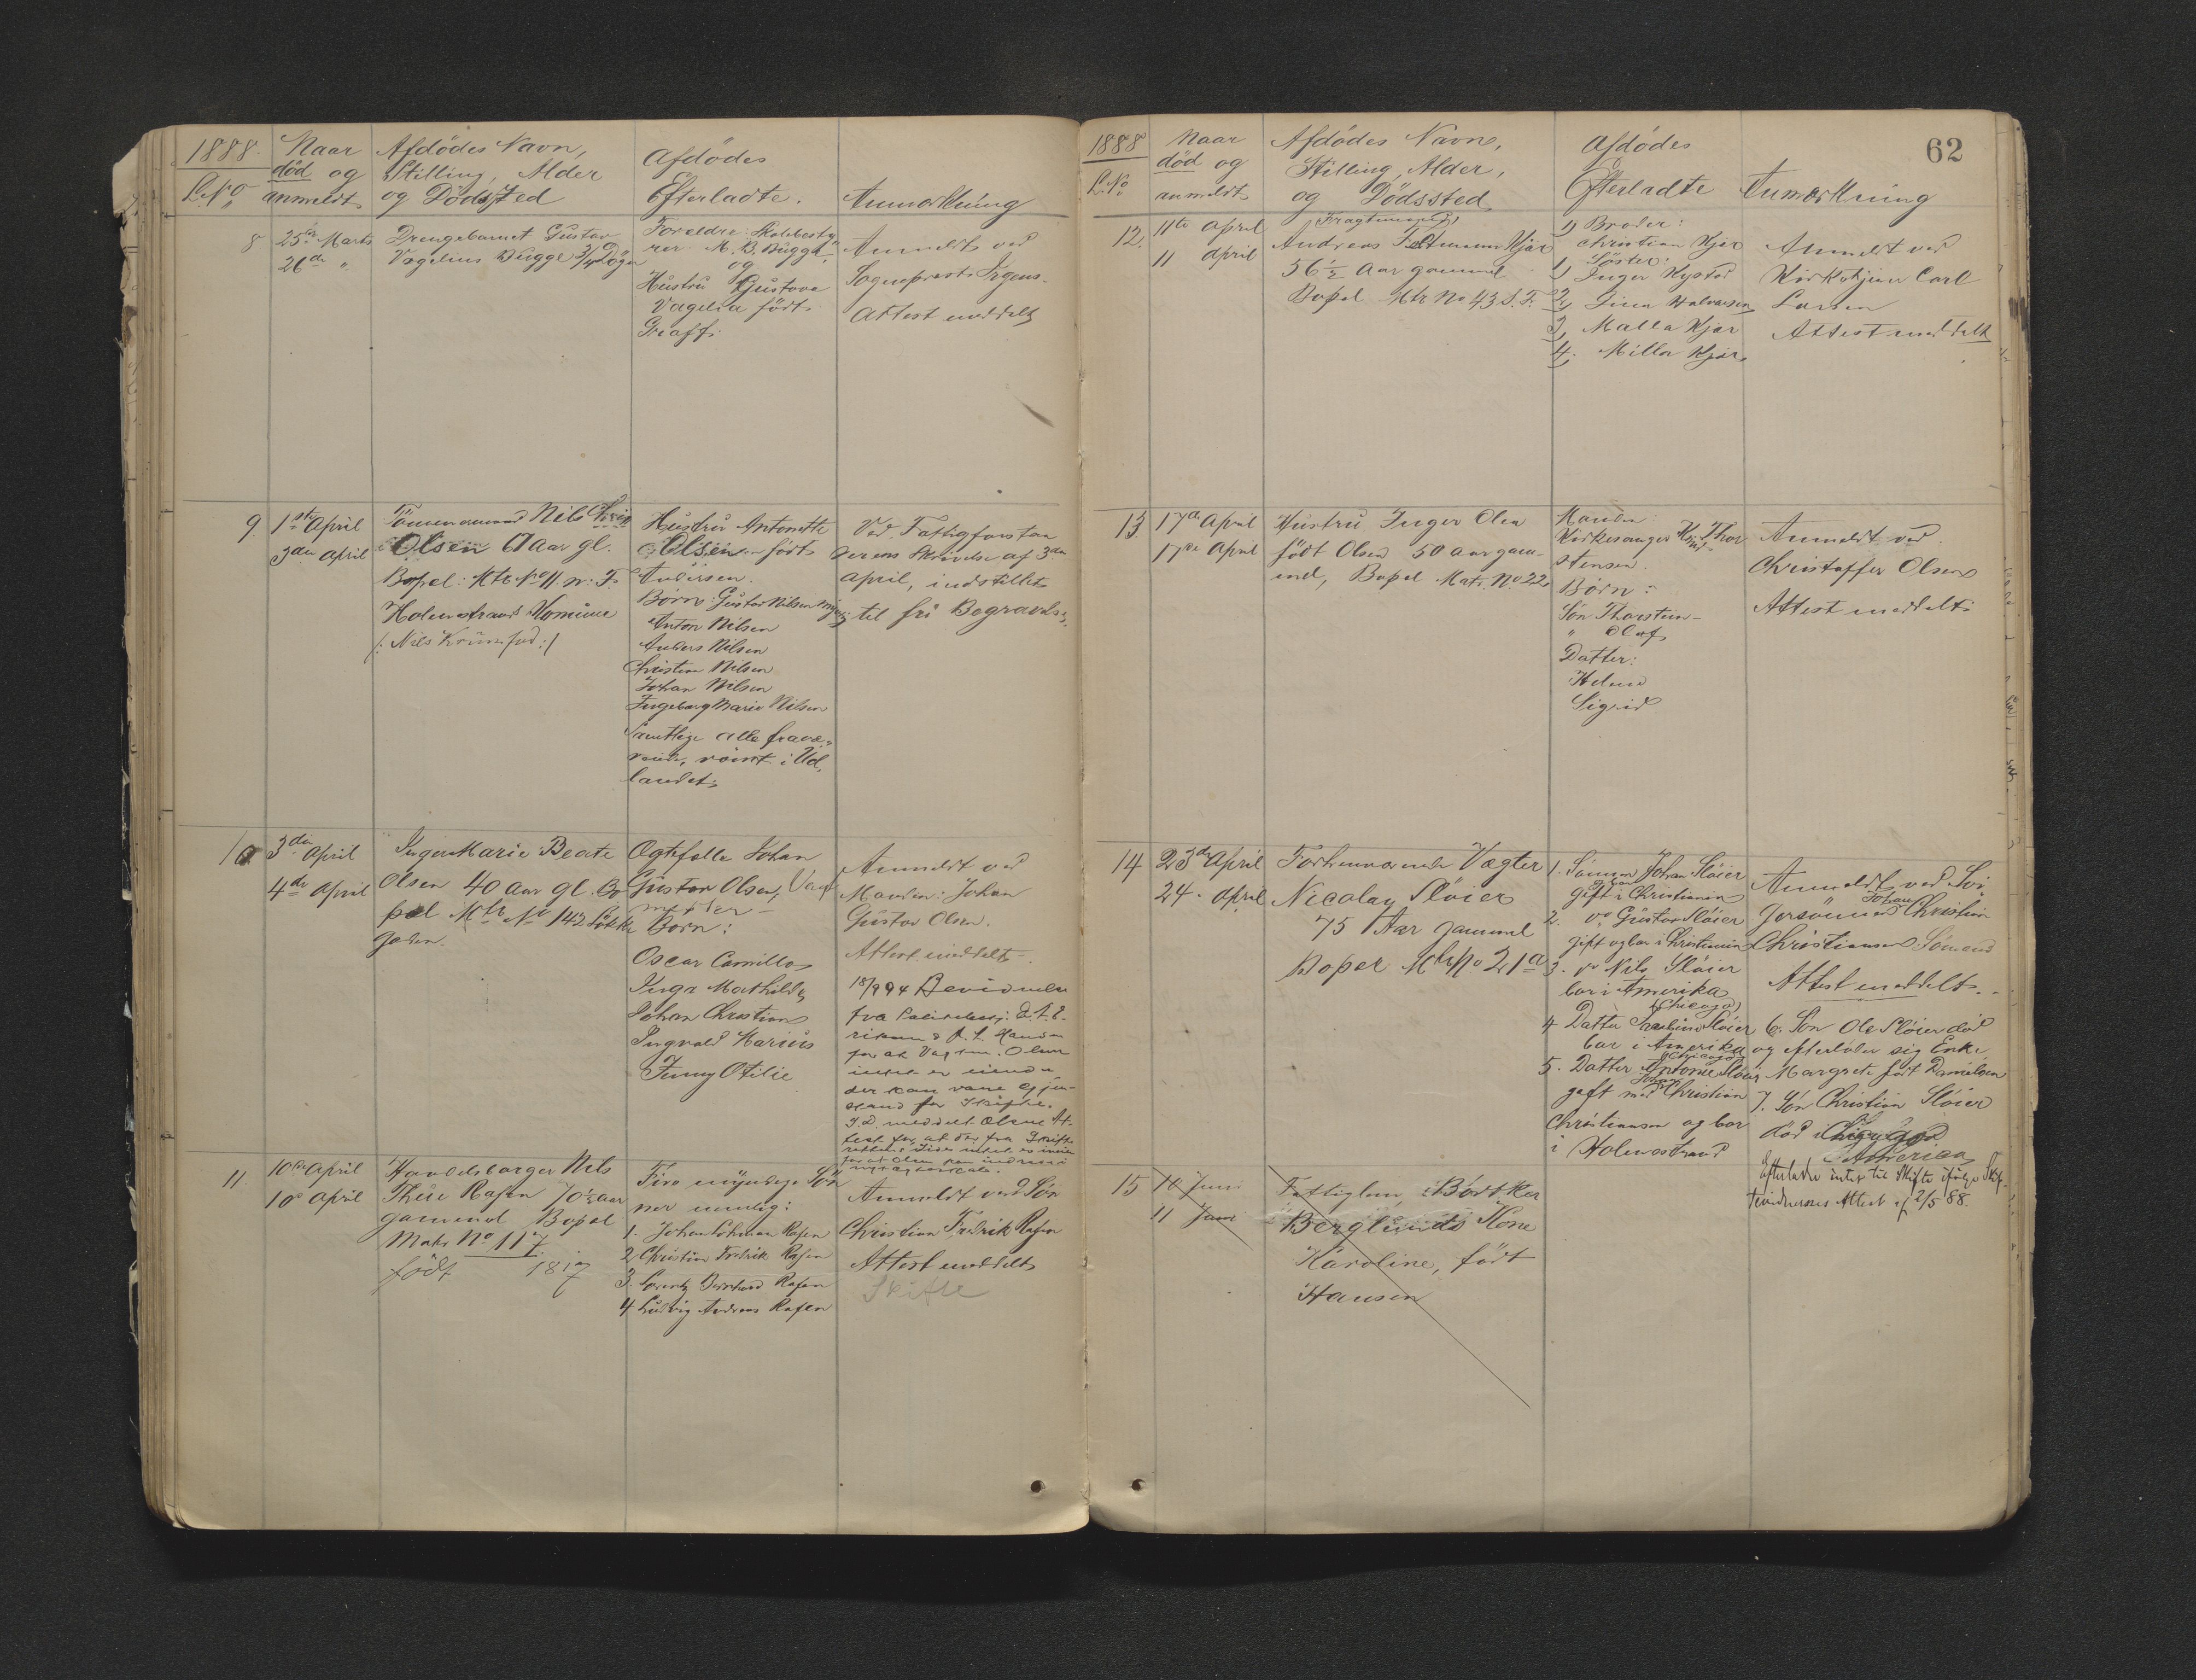 1888.
L.No
Naar
död og
anmeldt
Afdödes Navn,
Stilling, Alder
og Dödssted
Afdödes
Efterladte.
Anmærkning
8
25de Marts
26de "
Drengebarnet Gustav
Vagelius Bugge 3/4 Dögn
Forældre: Skolebesty-
rer M. B. Bugge,
og
Hustru Gustava
Vagelia födt
Graff.
Anmeldt ved
Sogneprest Irgens.
Attest meddelt
9.
1ste April
3die April
Tömmermand Nils
Olsen 67 Aar gl.
Bopel: Mtr No 11 n. F.
Holmestrands Komune
Hustru Antonette
Olsen födt
Andersen.
Börn: Gustav Nilsen
Anton Nilsen
Anders Nilsen
Christian Nilsen
Johan Nilsen
Ingeborg Marie Nilsen
Samtlige alle fravæ-
rende, reist i Ud-
landet.
Ved Fattigforstan
derens Skrivelse af 3die
April, indstillet
til fri Begravelse,
10
3die April
4de April
Inger Marie Beate
Olsen 40 Aar gl. Bo
pæl Mtr No 142 Lökke
gaden.
Ægtefælle Johan
Gustav Olsen, Vagt
mester -
Börn:
Oscar Camillo
Inga Mathilde
Johan Christian
Ingvald Marius
Jenny Otilie
Anmeldt ved
Manden: Johan
Gustav Olsen.
Attest meddelt.
for at Olsen
der kan være Gjen-
stand for Skifte.
11.
10de April
10de April
Handelsborger Nils
Thue Rafen 70½ Aar
gammel Bopæl
Matr No 117.
födt 1817
Fire myndige Søn
ner nemlig:
1. Johan Rafen
2 Christian Fredrik Rafen
3. Lorentz Bernhard Rafen
4 Ludvig Andreas Rafen
Anmeldt ved Søn
Christian Fredrik Rafen
Attest meddelt
Skifte
62
1888
L.No
Naar
död og
anmeldt
Afdödes Navn,
Stilling, Alder,
og Dödssted
Afdödes
Efterladte
Anmærkning
12.
11te April
11 April
Fragtmand
Andreas Kjær
56½ Aar gammel
Bopæl Mtr No 43 S. F.
1) Broder:
Christian Kjær
Söster:
1) Inger Nysted
2) Lina Halvorsen
3, Malla Kjær
4, Milla Kjær
Anmeldt ved
Kirketjener Carl
Larsen
Attest meddelt
13
17de April
17de April
Hustru Inger Olea
födt Olsen 50 Aar gam-
mel, Bopæl Matr. No 22
Manden
Kirkesanger Thor
stensen.
Börn:
Sön Thorstein -
" Olaf
Datter:
Helene
Sigrid
Anmeldt ved
Christoffer Olsen
Attest meddelt
14
23de April
24. April
Forhenværende Vægter
Nicolay Slöier
75 Aar gammel
Bopæl Mtr No 21a
1. Sönnen Johan Slöier
gift i Christiania
2. do Gustav Slöier
gift og bor i Christiania
3. do Nils Slöier
bor i Amerika
(Chicago)
4 Datter Slöier
bor i Amerika
(Chicago)
5. Datter Antonie Slöier
gift med Christian
Christiansen og bor
i Holmestrand
Anmeldt ved Svi-
gersönnen Johan Christian
Christiansen Sömand
Attest meddelt.
6. Sön Ole Slöier död
og efterlader sig Enke
Margrete födt Danielsen
7. Sön Christian Slöier
död i Chicago
America
Efterladte intet til Skifte ifölge Skif-
tevidnernes Attest af 2/5 88.
15
10 Juni
11 Juni
Fattiglem Bödtker
Berglunds Kone
Karoline, födt
Hansen